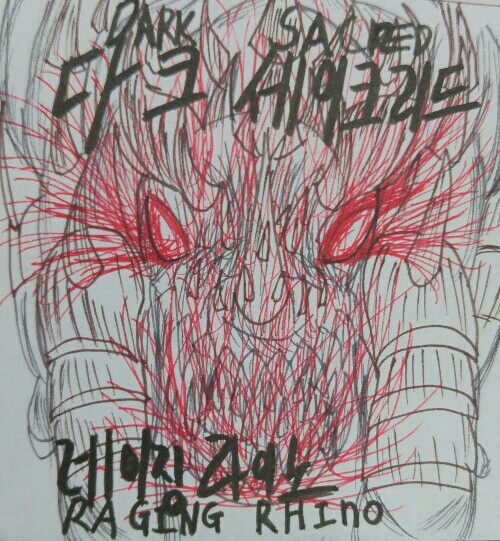 DARK SACRED
다크 세이크리드
레이징 라이노
RAGING RHINO